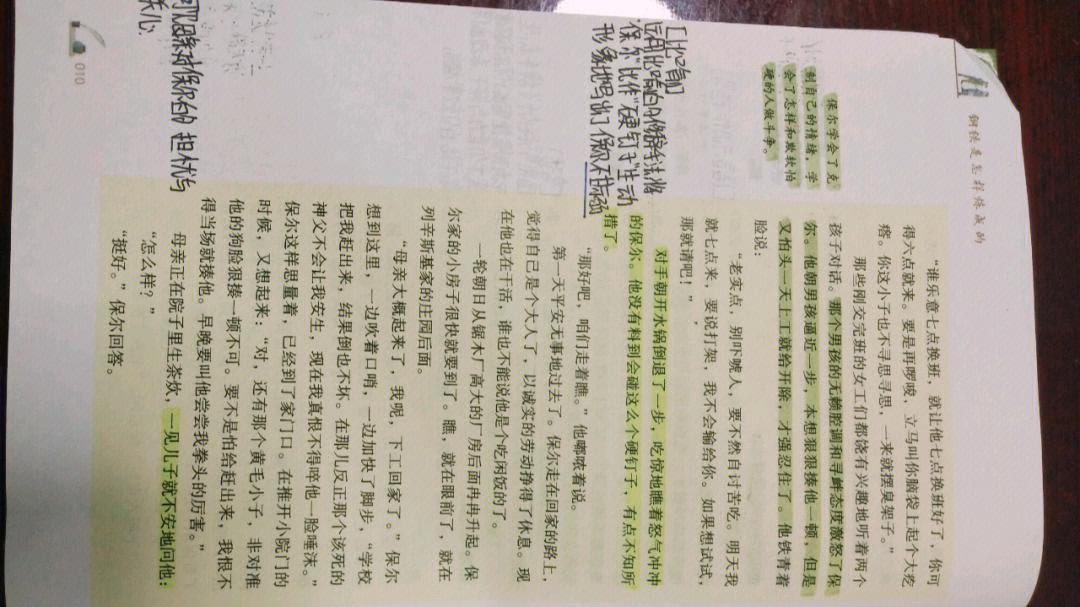 钢铁是怎样炼成的
“谁乐意七点换班，就让他七点换班好了，你可
得六点就来。要是再啰嗦，立马叫你脑袋上起个大疙
瘩。你这小子也不寻思寻思，一来就摆臭架子。”
那些刚交完班的女工们都饶有兴趣地听着两个
孩子对话。那个男孩的无赖腔调和寻衅态度激怒了保
尔。他朝男孩逼近一步，本想狠狠揍他一顿，但是
又怕头一天上工就给开除，才强忍住了。他铁青着
脸说：
“老实点，别吓唬人，要不然自讨苦吃。明天我
就七点来，要说打架，我不会输给你。如果想试试，
那就请吧！”
对手朝开水锅倒退了一步，吃惊地瞧着怒气冲冲
的保尔。他没有料到会碰这么个硬钉子，有点不知所
措了。
“那好吧，咱们走着瞧。”他嘟哝着说。
第一天平安无事地过去了。保尔走在回家的路上，
觉得自己是个大人了，以诚实的劳动挣得了休息。现
在他也在干活，谁也不能说他是个吃闲饭的了。
一轮朝日从锯木厂高大的厂房后面冉冉升起。保
尔家的小房子很快就要到了。瞧，就在眼前了，就在
列辛斯基家的庄园后面。
“母亲大概起来了，我呢，下工回家了。”保尔
想到这里，一边吹着口哨，一边加快了脚步，“学校
把我赶出来，结果倒也不坏。在那儿反正那个该死的
神父不会让我安生，现在我真恨不得啐他一脸唾沫。”
保尔这样思量着，已经到了家门口。在推开小院门的
时候，又想起来：“对，还有那个黄毛小子，非对准
他的狗脸狠揍一顿不可。要不是怕给赶出来，我恨不
得当场就揍他。早晚要叫他尝尝我拳头的厉害。”
母亲正在院子里生茶炊，一见儿子就不安地问他：
“怎么样？”
“挺好。”保尔回答。
保尔学会了克
制自己的情绪，学
会了怎样和欺软怕
硬的人做斗争。
[比喻]
运用比喻的修辞手法将
“保尔”比作“硬钉子”生动
形象地写出了保尔不怕强
可以看出妈妈对保尔的担忧与
关心
010